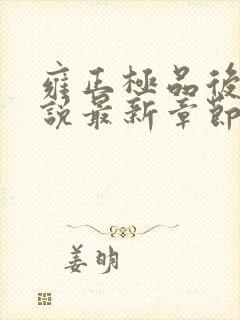 雍正極品後
說最新章節
姜明